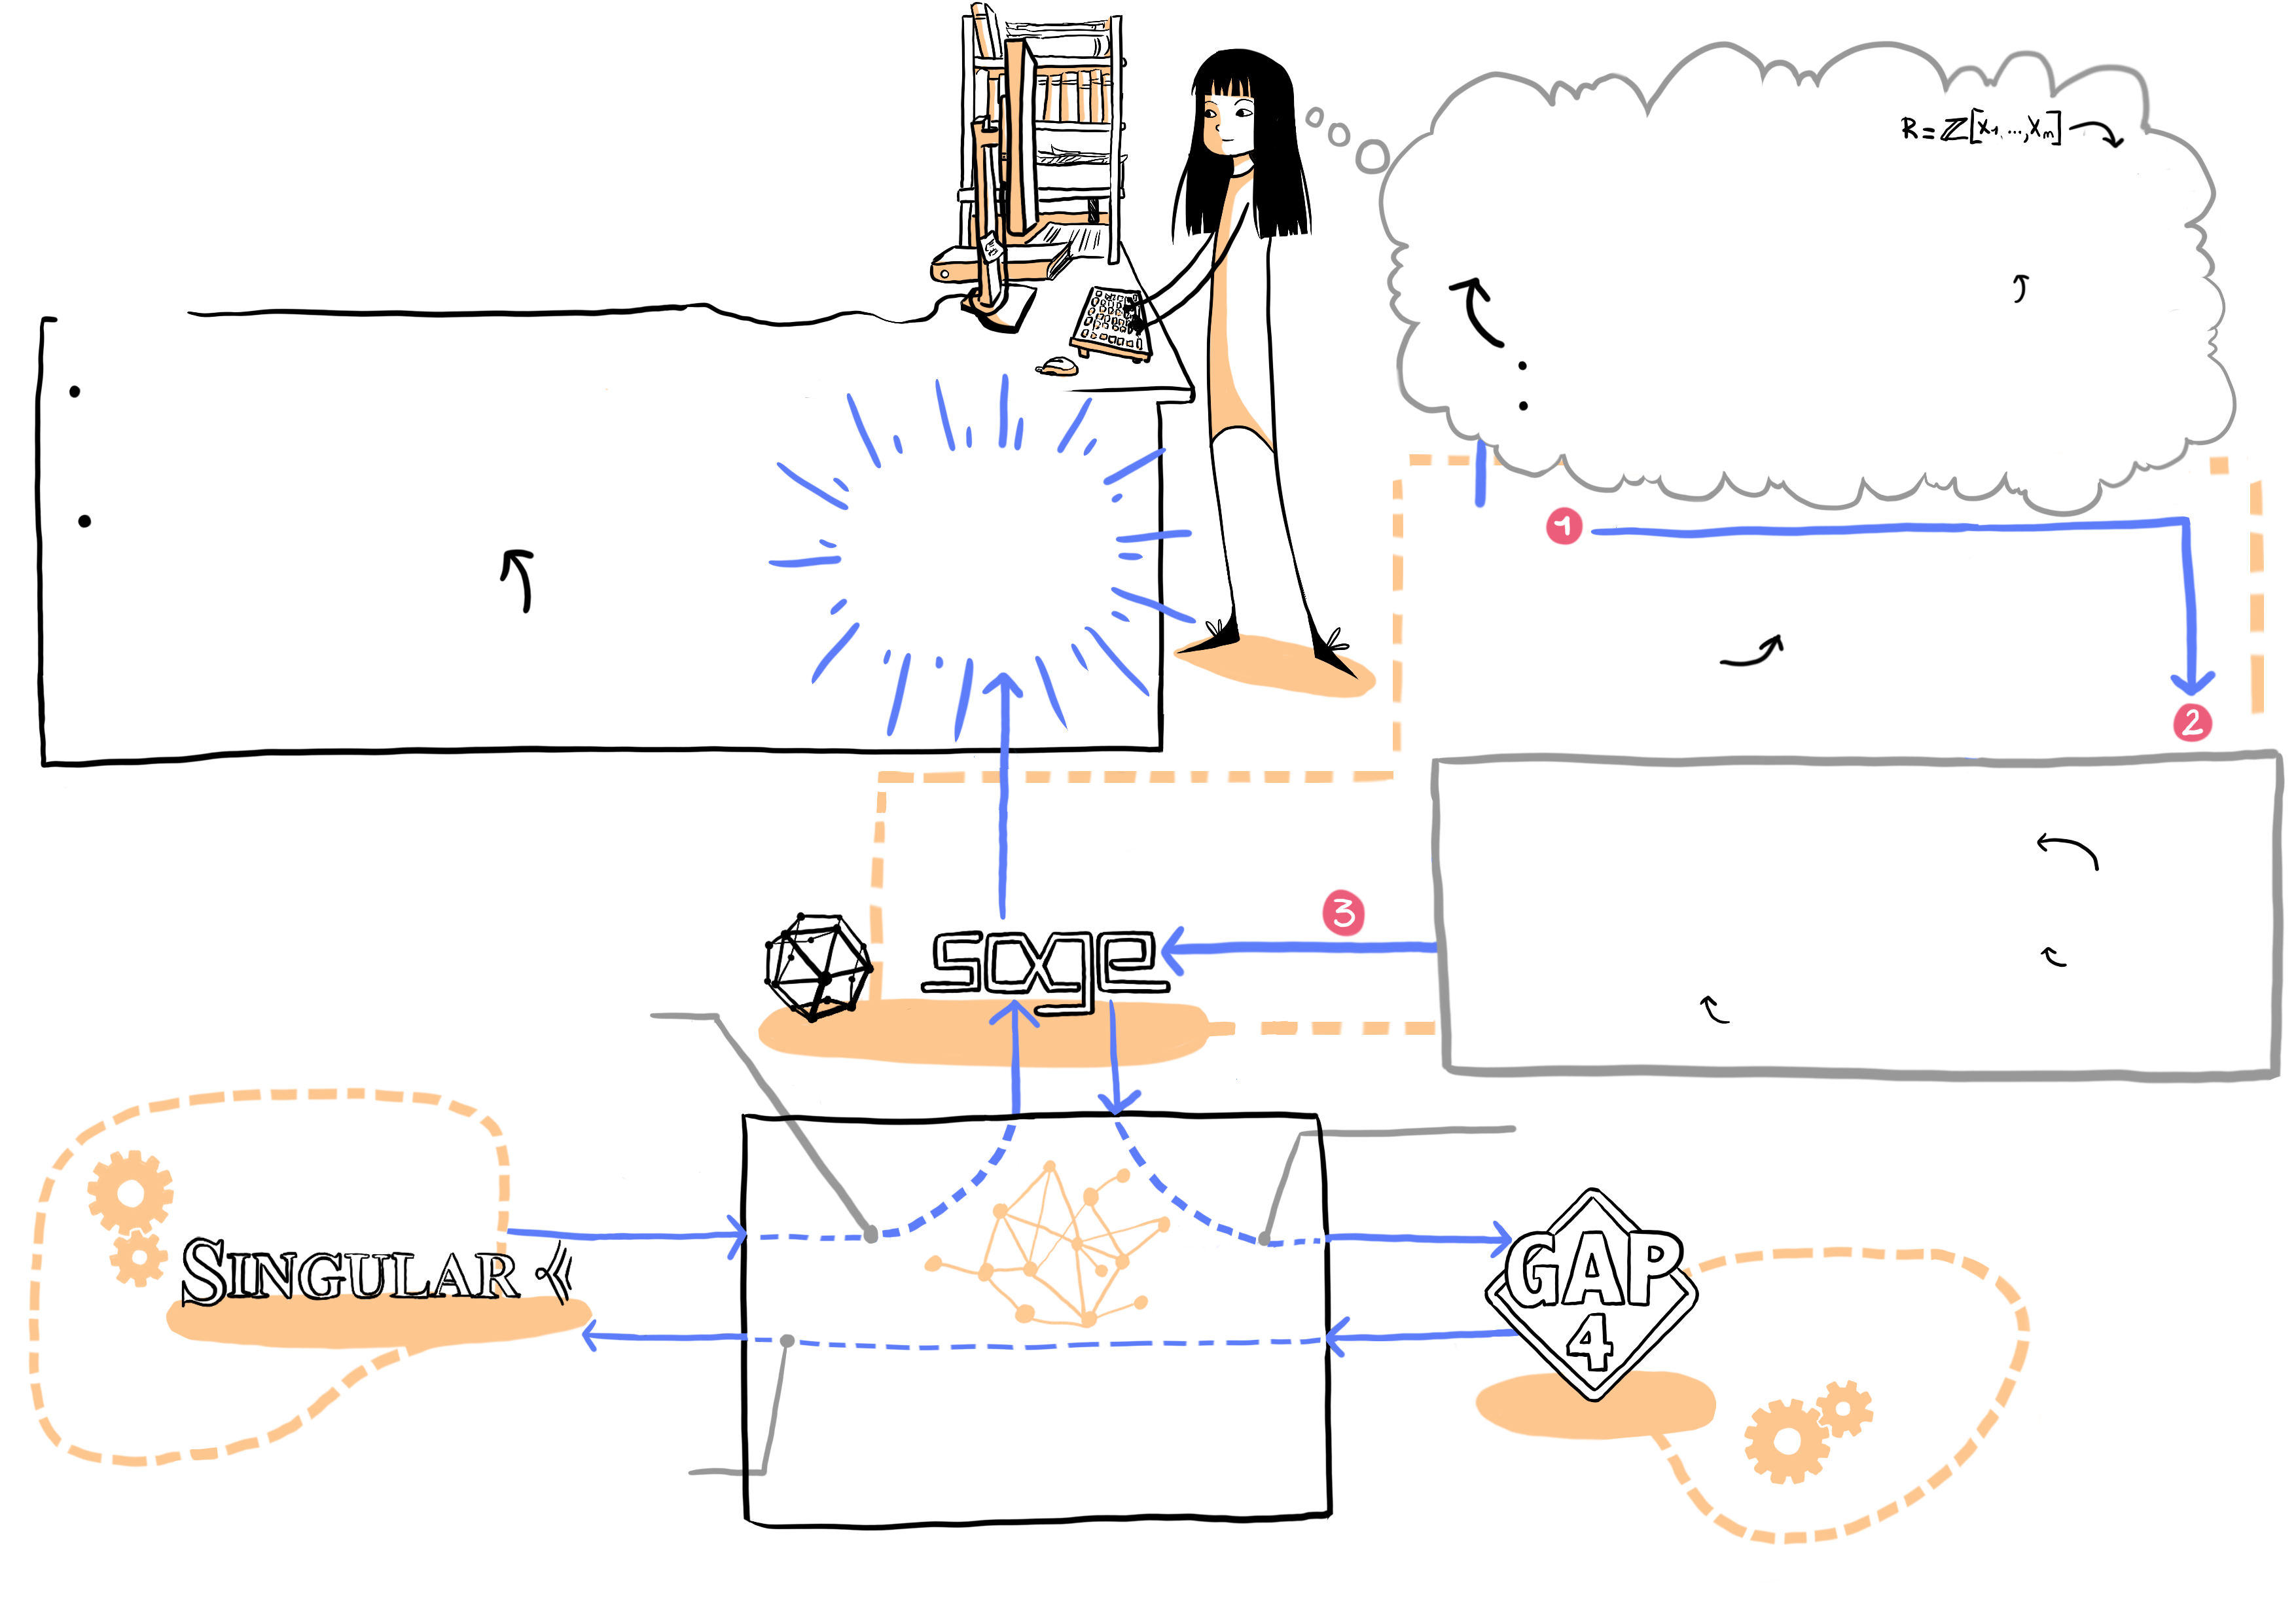 R=ℤ[x₁,...,xₘ]
1
2
3
sage
SINGULAR
GAP
4